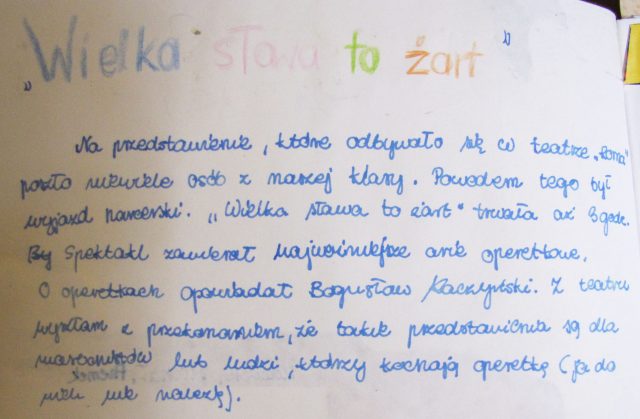 „Wielka sława to żart”
Na przedstawienie, które odbywało się w teatrze „Roma”
poszło niewiele osób z naszej klasy. Powodem tego był
wyjazd narciarski. „Wielka sława to żart” trwała aż 3 godz.
Spektakl zawierał najważniejsze arie operetkowe.
O operetkach opowiadał Bogusław Kaczyński. Z teatru
wyszłam z przekonaniem, że takie przedstawienia są dla
lub ludzi, którzy kochają operetkę (ja do
nich nie należę).